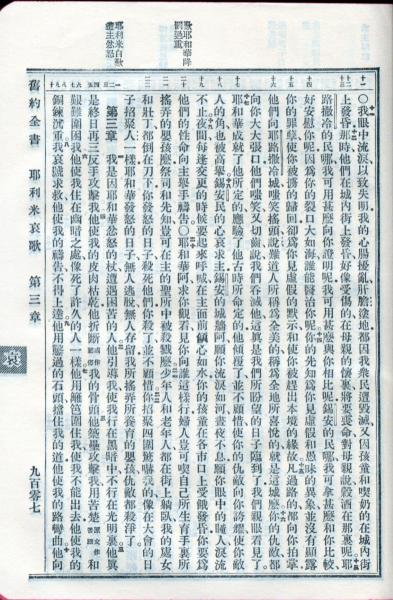 歎耶和華降罰過重
耶利米自歎遭主忿怒
〇我眼中流淚以致失明我的心腸擾亂肝膽塗地都因我衆民遭毀滅又因孩童和喫奶的在城內街
上發昏那時他們在城內街上發昏好像受傷的在母親的懷裏將要喪命對母親說穀酒在那裏呢耶
路撒冷的民哪我可用甚麼向你證明呢我可用甚麼與你相比呢錫安的民哪我可拿甚麼和你比較
好安慰你呢因爲你的裂口大如海誰能醫治你呢你的先知爲你見虛假和愚昧的異象並沒有顯露
你的罪孽使你被擄的歸回却爲你見虛假的默示和使你被趕出本境的緣故凡過路的都向你拍掌
他們向耶路撒冷城嗤笑搖頭說難道人所稱爲全美的稱爲全地所喜悅的就是這城麼你的仇敵都
向你大大張口他們嗤笑又切齒說我們吞滅他這眞是我們所盼望的日子臨到了我們親眼看見了
耶和華成就了他所定的應驗了他古時所命定的他傾覆了並不顧惜使你的仇敵向你誇耀使你敵
人的角也被高舉錫安民的心哀求主錫安的城牆阿願你流淚如河晝夜不息願你眼中的瞳人淚流
不止夜間每逢交更的時候要起來呼喊在主面前傾心如水你的孩童在各市口上受餓發昏你要爲
他們的性命向主舉手禱告〇耶和華阿求你觀看見你向誰這樣行婦人豈可喫自己所生育手裏所
搖弄的嬰孩麼祭司和先知豈可在主的聖所中被殺戮麼少年人和老年人都在街上躺臥我的處女
和壯丁都倒在刀下你發怒的日子殺死他們你殺了並不顧惜你招聚四圍驚嚇我的像在大會的日
子招聚人一樣耶和華發怒的日子無人逃脫無人存留我所搖弄所養育的嬰孩仇敵都殺淨了
第三章 我是因耶和華忿怒的杖遭遇困苦的人他引導我使我行在黑暗中不行在光明裏他眞
是終日再三反手攻擊我他使我的皮肉枯乾他折斷我的骨頭他築壘攻擊我用苦楚和
艱難圍困我他使我住在幽暗之處像死了許久的人一樣他用籬笆圍住我使我不能出去他使我的
銅鍊沉重我哀號求救他使我的禱告不得上達他用鑿過的石頭擋住我的道他使我的路彎曲他向
舊約全書 耶利米哀歌 第三章
哀
九百零七